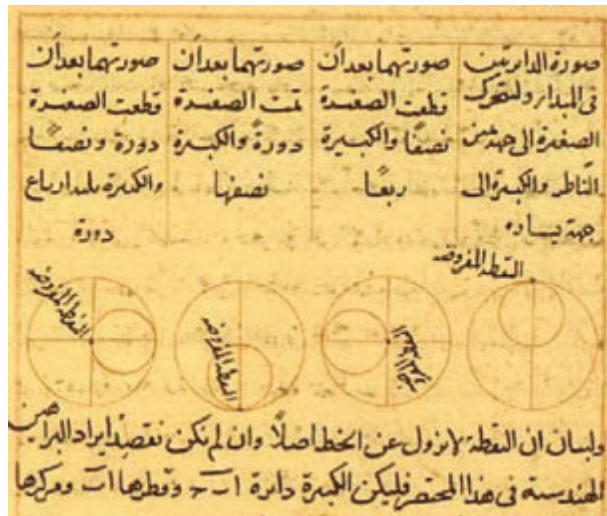 صورة الدايرتين
فى المبدا ولتتحرك
الصغيرة الى جهة يمين
الناظر والكبيرة الى
جهة يساره
صورتهما بعد ان
قطعت الصغيرة
نصفًا والكبيرة
ربعًا
صورتهما بعد ان
تمت الصغيرة
دورةً والكبيرة
نصفها
صورتهما بعد ان
قطعت الصغيرة
دورة ونصفًا
والكبيرة ثلثة ارباع
دورة
النقطة المفروضة
النقطة المفروضة
النقطة المفروضة
النقطة المفروضة
ولبيان ان النقطة لا تزول عن الخط اصلًا وان لم نكن نقصد ايراد البراهين
الهندسية فى هذا المختصر فليكن الكبيرة دائرة اب وقطرها اب ومركزها